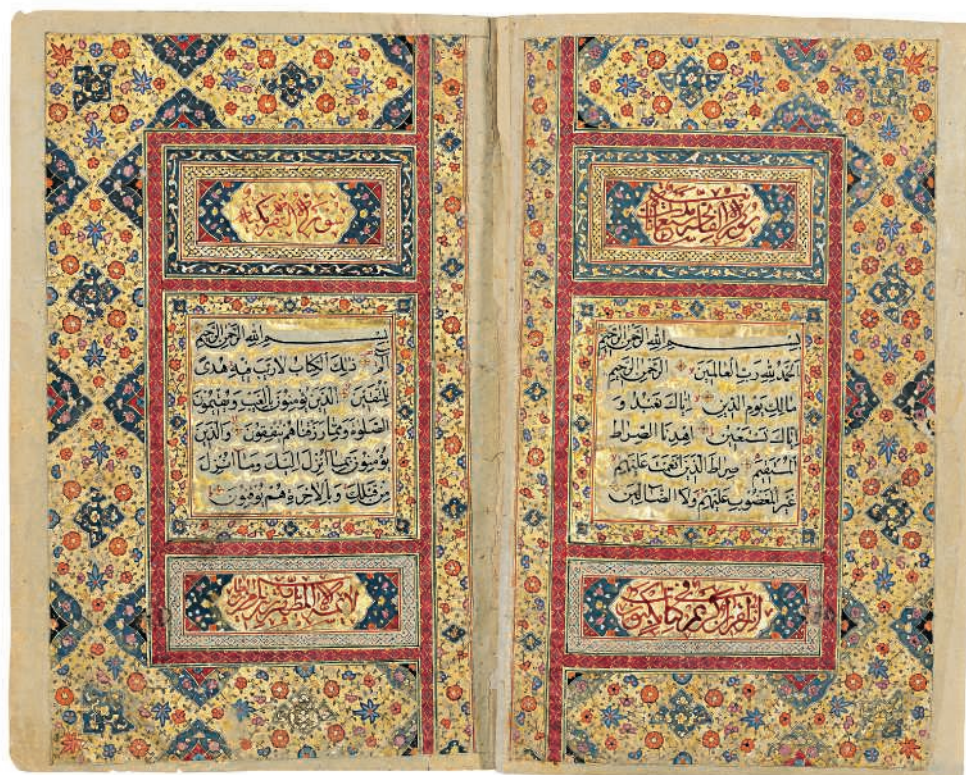 سورة الفاتحة سبع آيات
بِسْمِ اللهِ الرَّحْمنِ الرَّحِيمِ
اَلْحَمْدُ لِلّهِ رَبِّ الْعالَمِينَ الرَّحْمنِ الرَّحِيمِ
مالِكِ يَوْمِ الدِّينِ اِيّاكَ نَعْبُدُ وَ
اِيّاكَ نَسْتَعِينُ اِهْدِنَا الصِّراطَ
الْمُسْتَقِيمَ صِراطَ الَّذِينَ اَنْعَمْتَ عَلَيْهِمْ
غَيْرِ الْمَغْضُوبِ عَلَيْهِمْ وَلَا الضّالِّينَ
انه لقرآن كريم في كتاب مكنون
سورة البقرة
بِسْمِ اللهِ الرَّحْمنِ الرَّحِيمِ
الم ذلِكَ الْكِتابُ لا رَيْبَ فِيهِ هُدىً
لِلْمُتَّقِينَ الَّذِينَ يُؤْمِنُونَ بِالْغَيْبِ وَيُقِيمُونَ
الصَّلوةَ وَمِمّا رَزَقْناهُمْ يُنْفِقُونَ وَالَّذِينَ
يُؤْمِنُونَ بِما اُنْزِلَ اِلَيْكَ وَما اُنْزِلَ
مِنْ قَبْلِكَ وَبِالْاخِرَةِ هُمْ يُوقِنُونَ
لا يمسه الا المطهرون تنزيل من رب